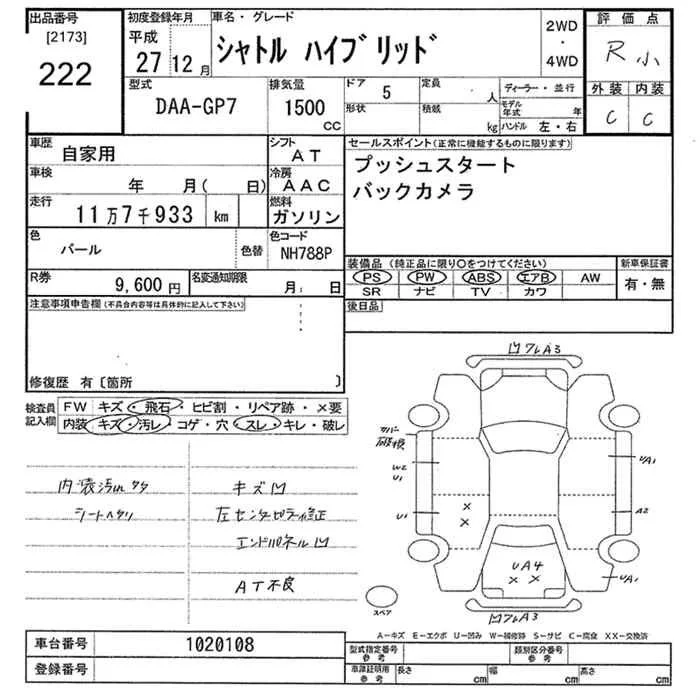 出品番号 初度登録年月 車名・グレード 2WD・4WD 評価点
[2173] 平成 シャトル ハイブリッド R小
222 27 12月
型式 排気量 ドア 5 定員 人 ディーラー・並行 外装 内装
DAA-GP7 1500 cc 形状 積載 kg モデル年式 年 C C
ハンドル 左・右
車歴 自家用 シフト AT セールスポイント(正常に機能するものに限ります)
車検 年 月( 日) 冷房 AAC プッシュスタート
走行 11万7千933 km 燃料 ガソリン バックカメラ
色 パール 色替 色コード NH788P
装備品(純正品に限り○をつけてください) 新車保証書
R券 9,600円 名変通知期限 月 日 PS PW ABS エアB AW 有・無
SR ナビ TV カワ
注意事項申告欄(不具合内容等は具体的に記入して下さい) 後日品
修復歴 有〔箇所 〕
検査員記入欄 FW キズ・飛石・ヒビ割・リペア跡・×要
内装 キズ・汚レ・コゲ・穴・スレ・キレ・破レ
内装汚れ キズ凹
シートヘタリ 左センターピラー修正
エンドパネル凹
AT不良
凹ワレA3
カバー破損
W2
U1
U1
UA1
A2
UA1
UA4
凹ワレA3
スペア
A−キズ E−エクボ U−凹み W−補修跡 S−サビ C−腐食 XX−交換済
車台番号 1020108 型式指定番号 参考 類別区分番号 参考
登録番号 車庫証明用 参考 長さ cm 幅 cm 高さ cm